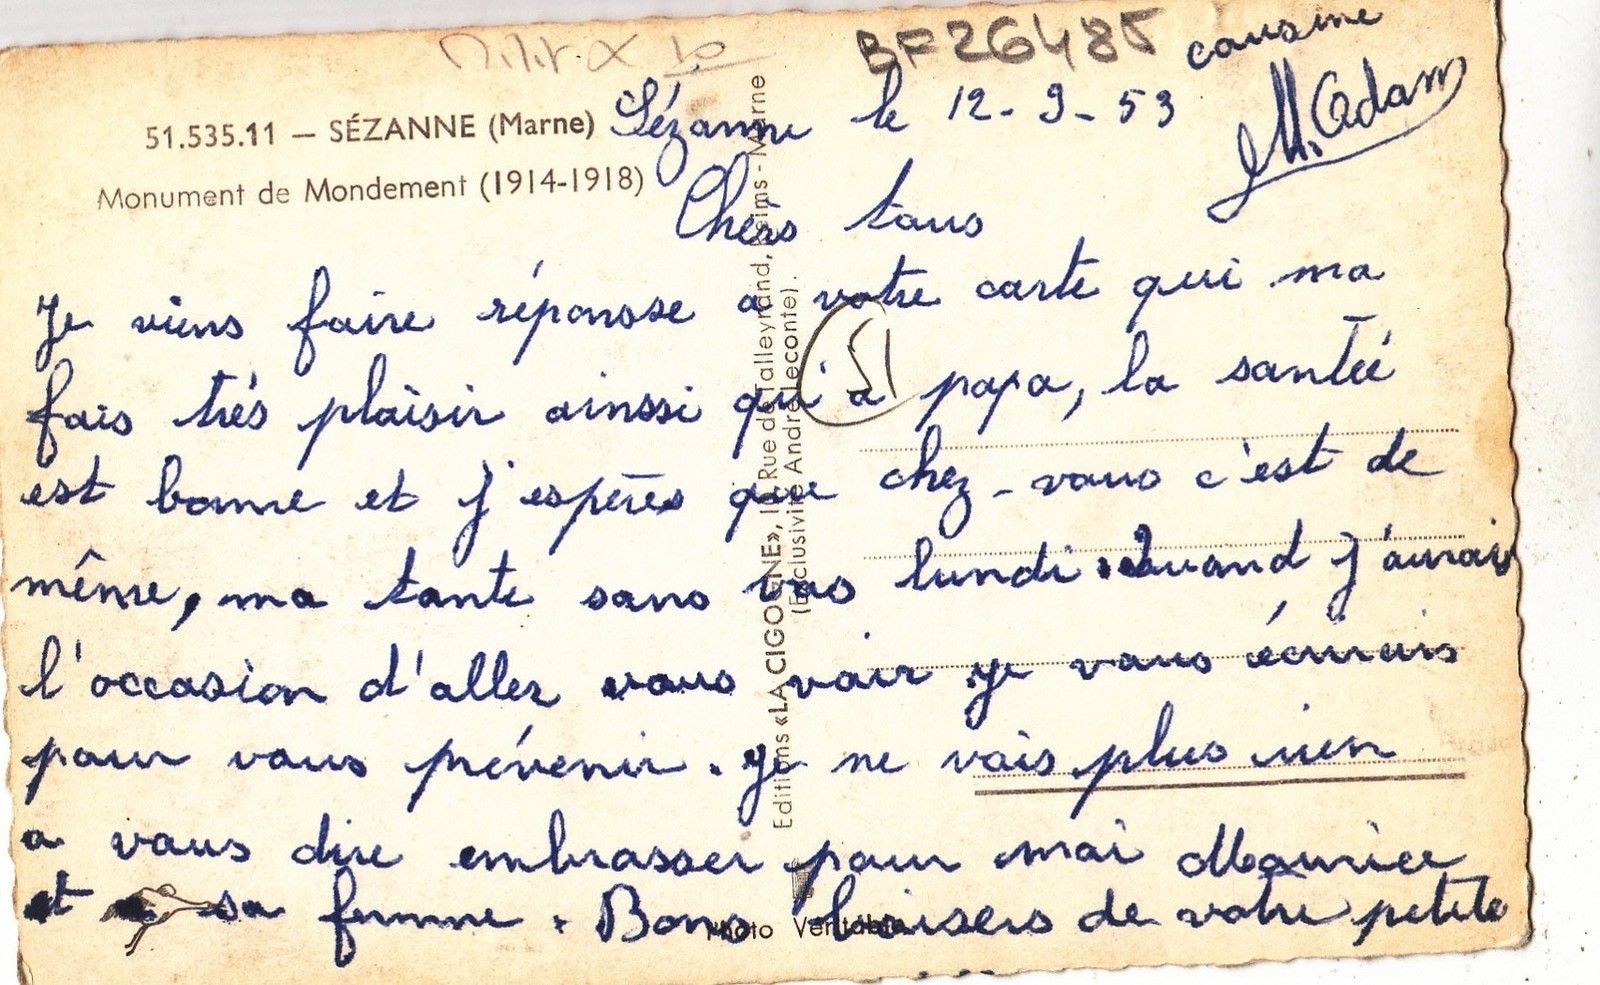 Milit
BF26485
cousine
M. Adam
51.535.11 — SÉZANNE (Marne)
Monument de Mondement (1914-1918)
Sézanne le 12-9-53
Chers tous
Je viens faire réponsse a votre carte qui ma
fais très plaisir ainssi qu'à papa, la santée
est bonne et j'espères que chez-vous c'est de
même, ma tante sans vas lundi. Quand j'aurais
l'occasion d'aller vous voir je vous écrirais
pour vous prévenir. Je ne vois plus rien
a vous dire embrasser pour moi Maurice
et sa femme. Bons baisers de votre petite
51
Editions «LA CIGOGNE», Rue de Talleyrand, Reims - Marne
(Exclusivité André Leconte).
Photo Véritable